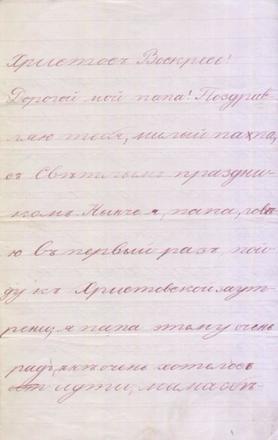 Христосъ Воскресъ!
Дорогой мой папа! Поздрав
ляю тебя, милый папа,
съ Свѣтлымъ праздни-
комъ. Нынче я, папа,
ю въ первый разъ пой
ду къ Христовской заут
рени; я папа этому очень
радъ, мнѣ очень хотелось
итти, мама